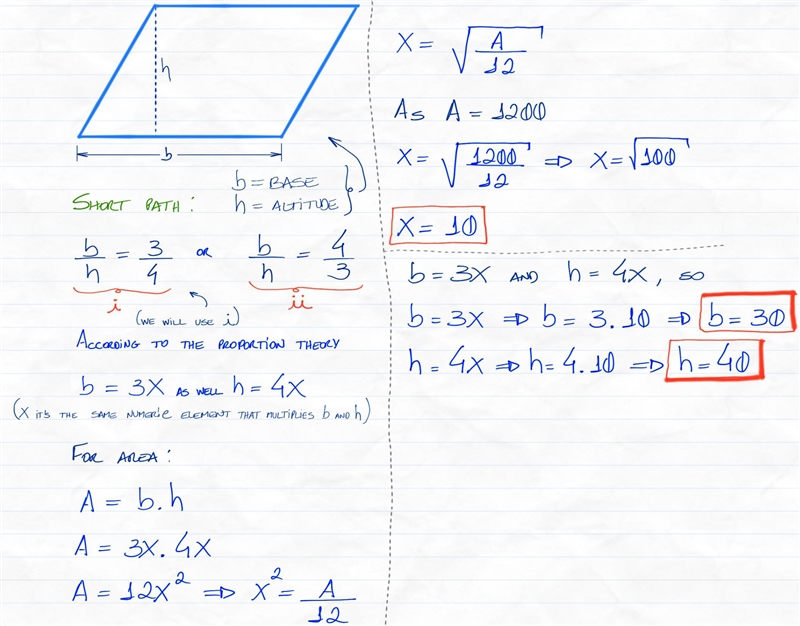 h
b
b = BASE
h = ALTITUDE
SHORT PATH:
b/h = 3/4 or b/h = 4/3
i ii
(WE WILL USE i)
ACCORDING TO THE PROPORTION THEORY
b = 3X AS WELL h = 4X
(X IT'S THE SAME NUMERIC ELEMENT THAT MULTIPLIES b AND h)
FOR AREA:
A = b.h
A = 3X.4X
A = 12X² ⇒ X² = A/12
X = √(A/12)
AS A = 1200
X = √(1200/12) ⇒ X = √100
X = 10
b = 3X AND h = 4X, SO
b = 3X ⇒ b = 3.10 ⇒ b = 30
h = 4X ⇒ h = 4.10 ⇒ h = 40